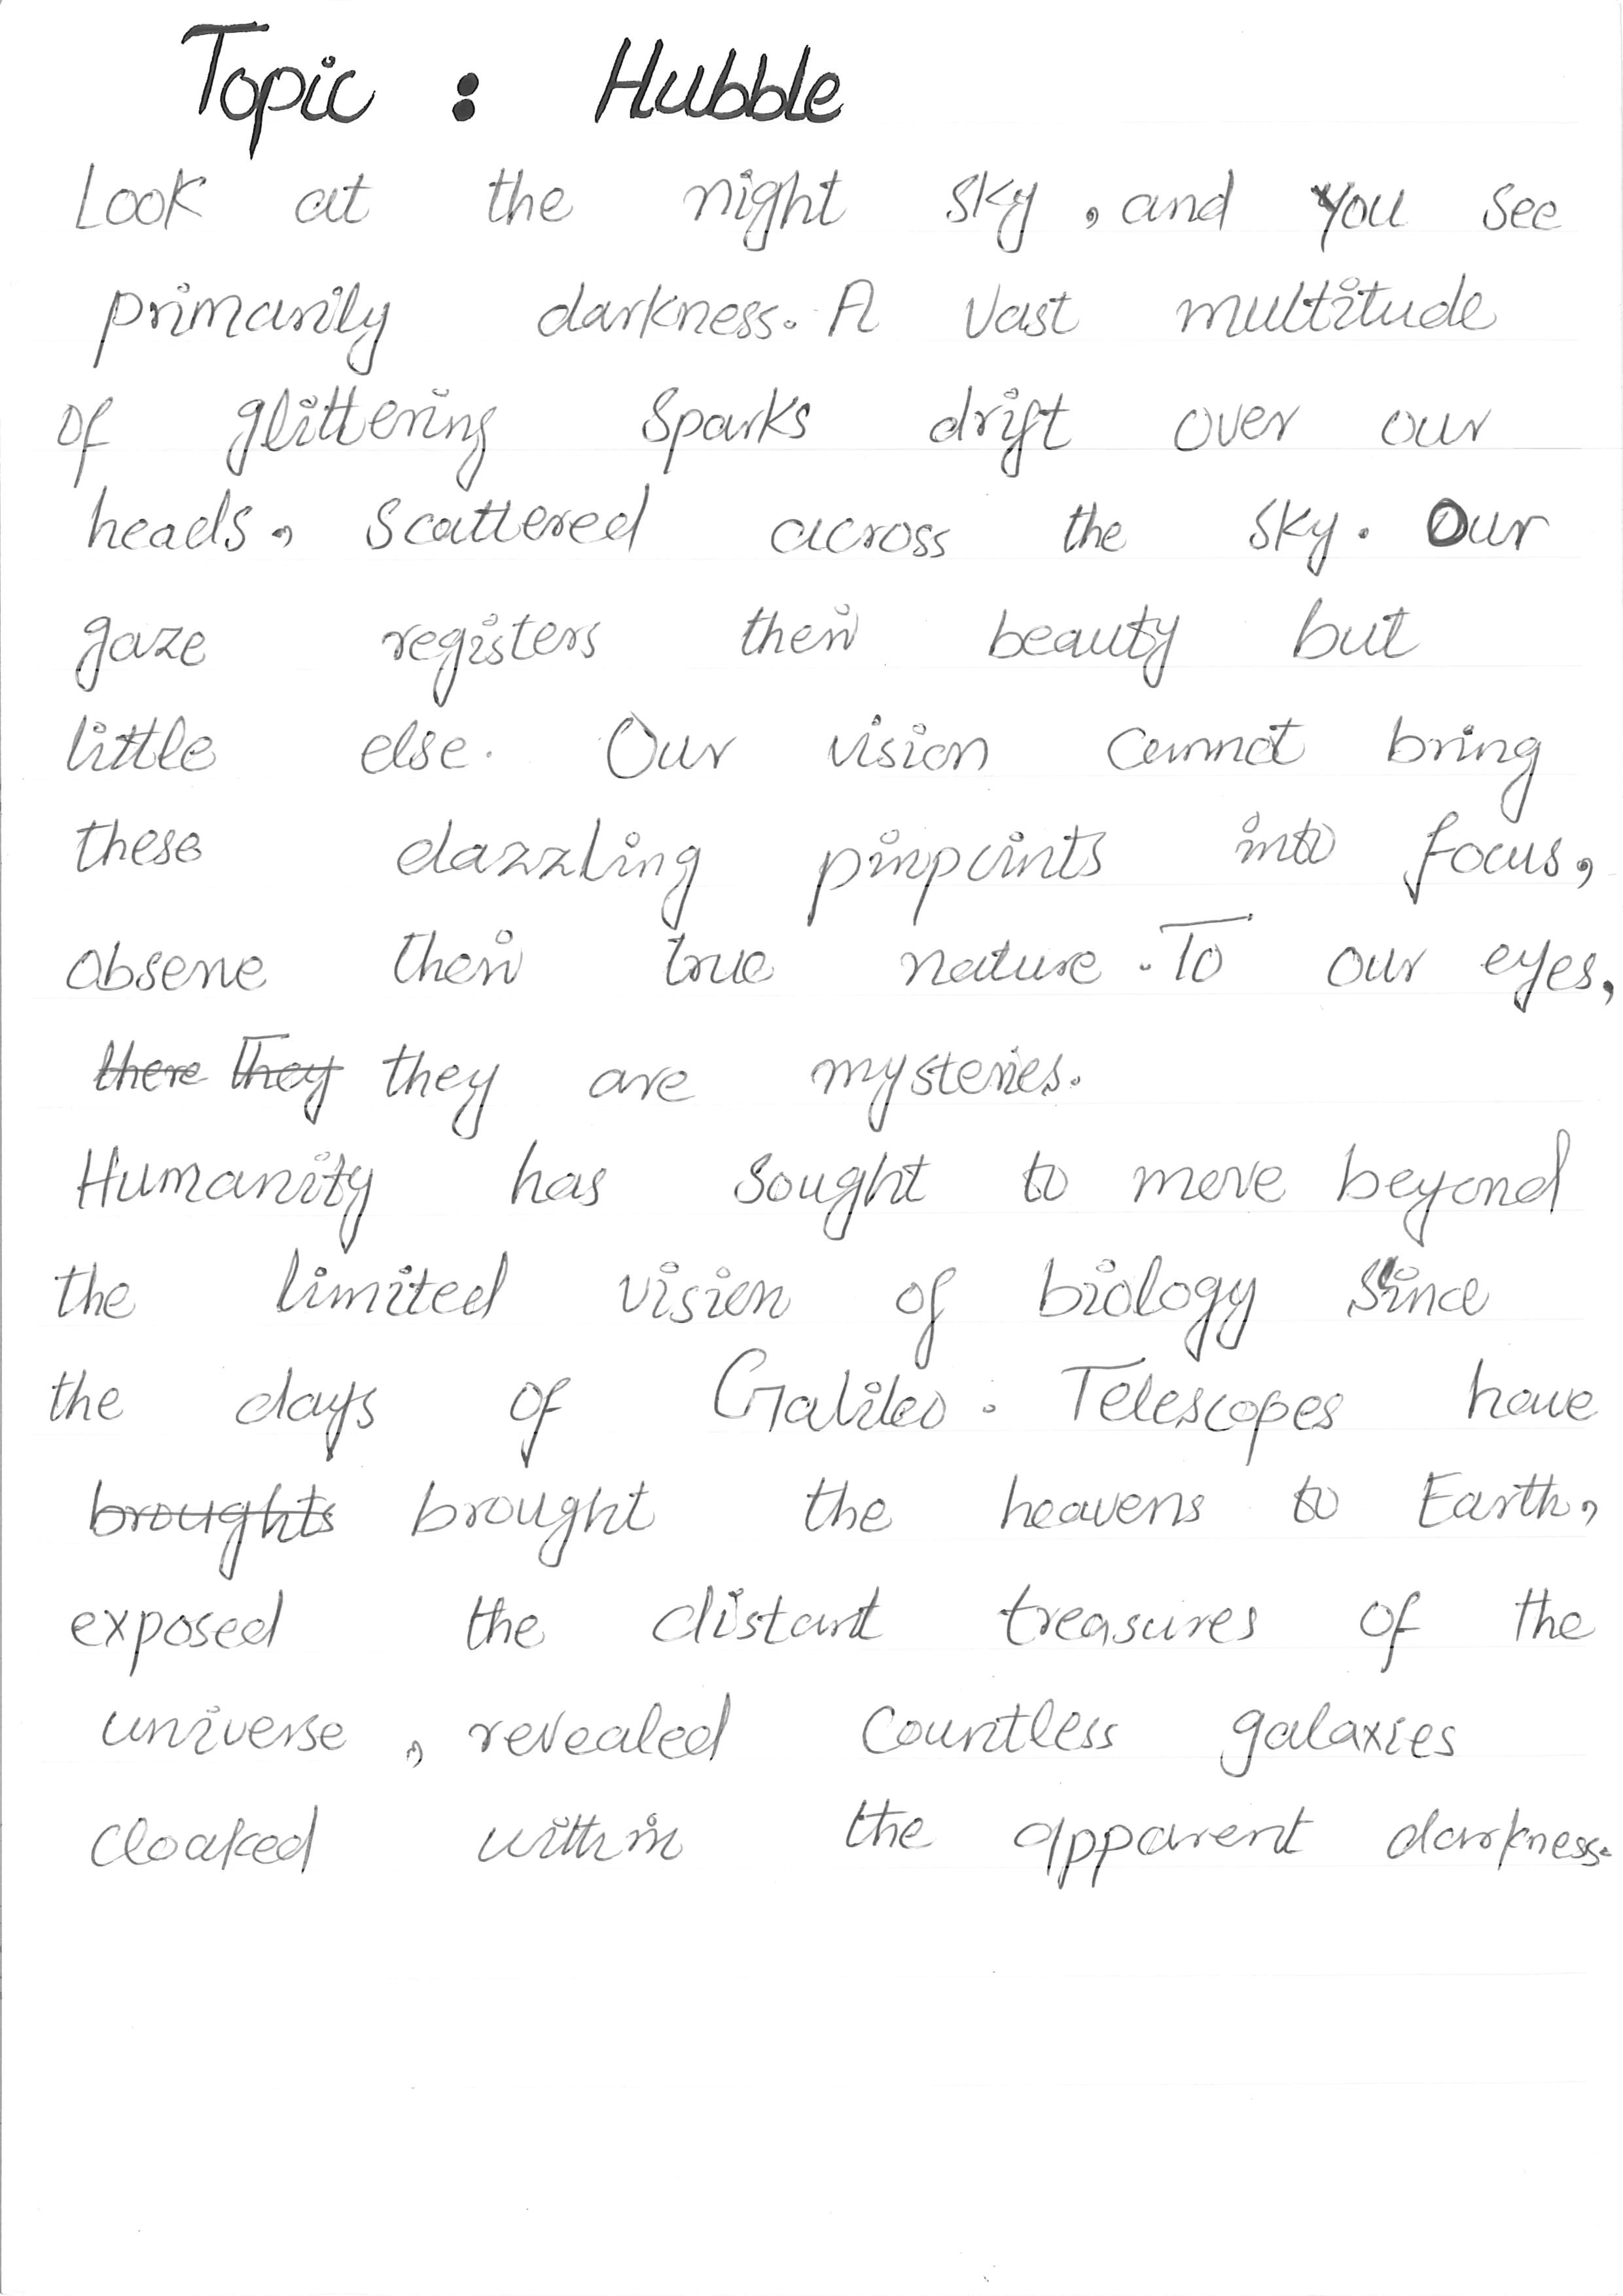 Topic : Hubble
Look at the night sky, and you see
primarily darkness. A vast multitude
of glittering sparks drift over our
heads, scattered across the sky. Our
gaze registers their beauty but
little else. Our vision cannot bring
these dazzling pinpoints into focus,
observe their true nature. To our eyes,
there They they are mysteries.
Humanity has sought to move beyond
the limited vision of biology since
the days of Galileo. Telescopes have
broughts brought the heavens to Earth,
exposed the distant treasures of the
universe, revealed countless galaxies
cloaked within the apparent darkness.